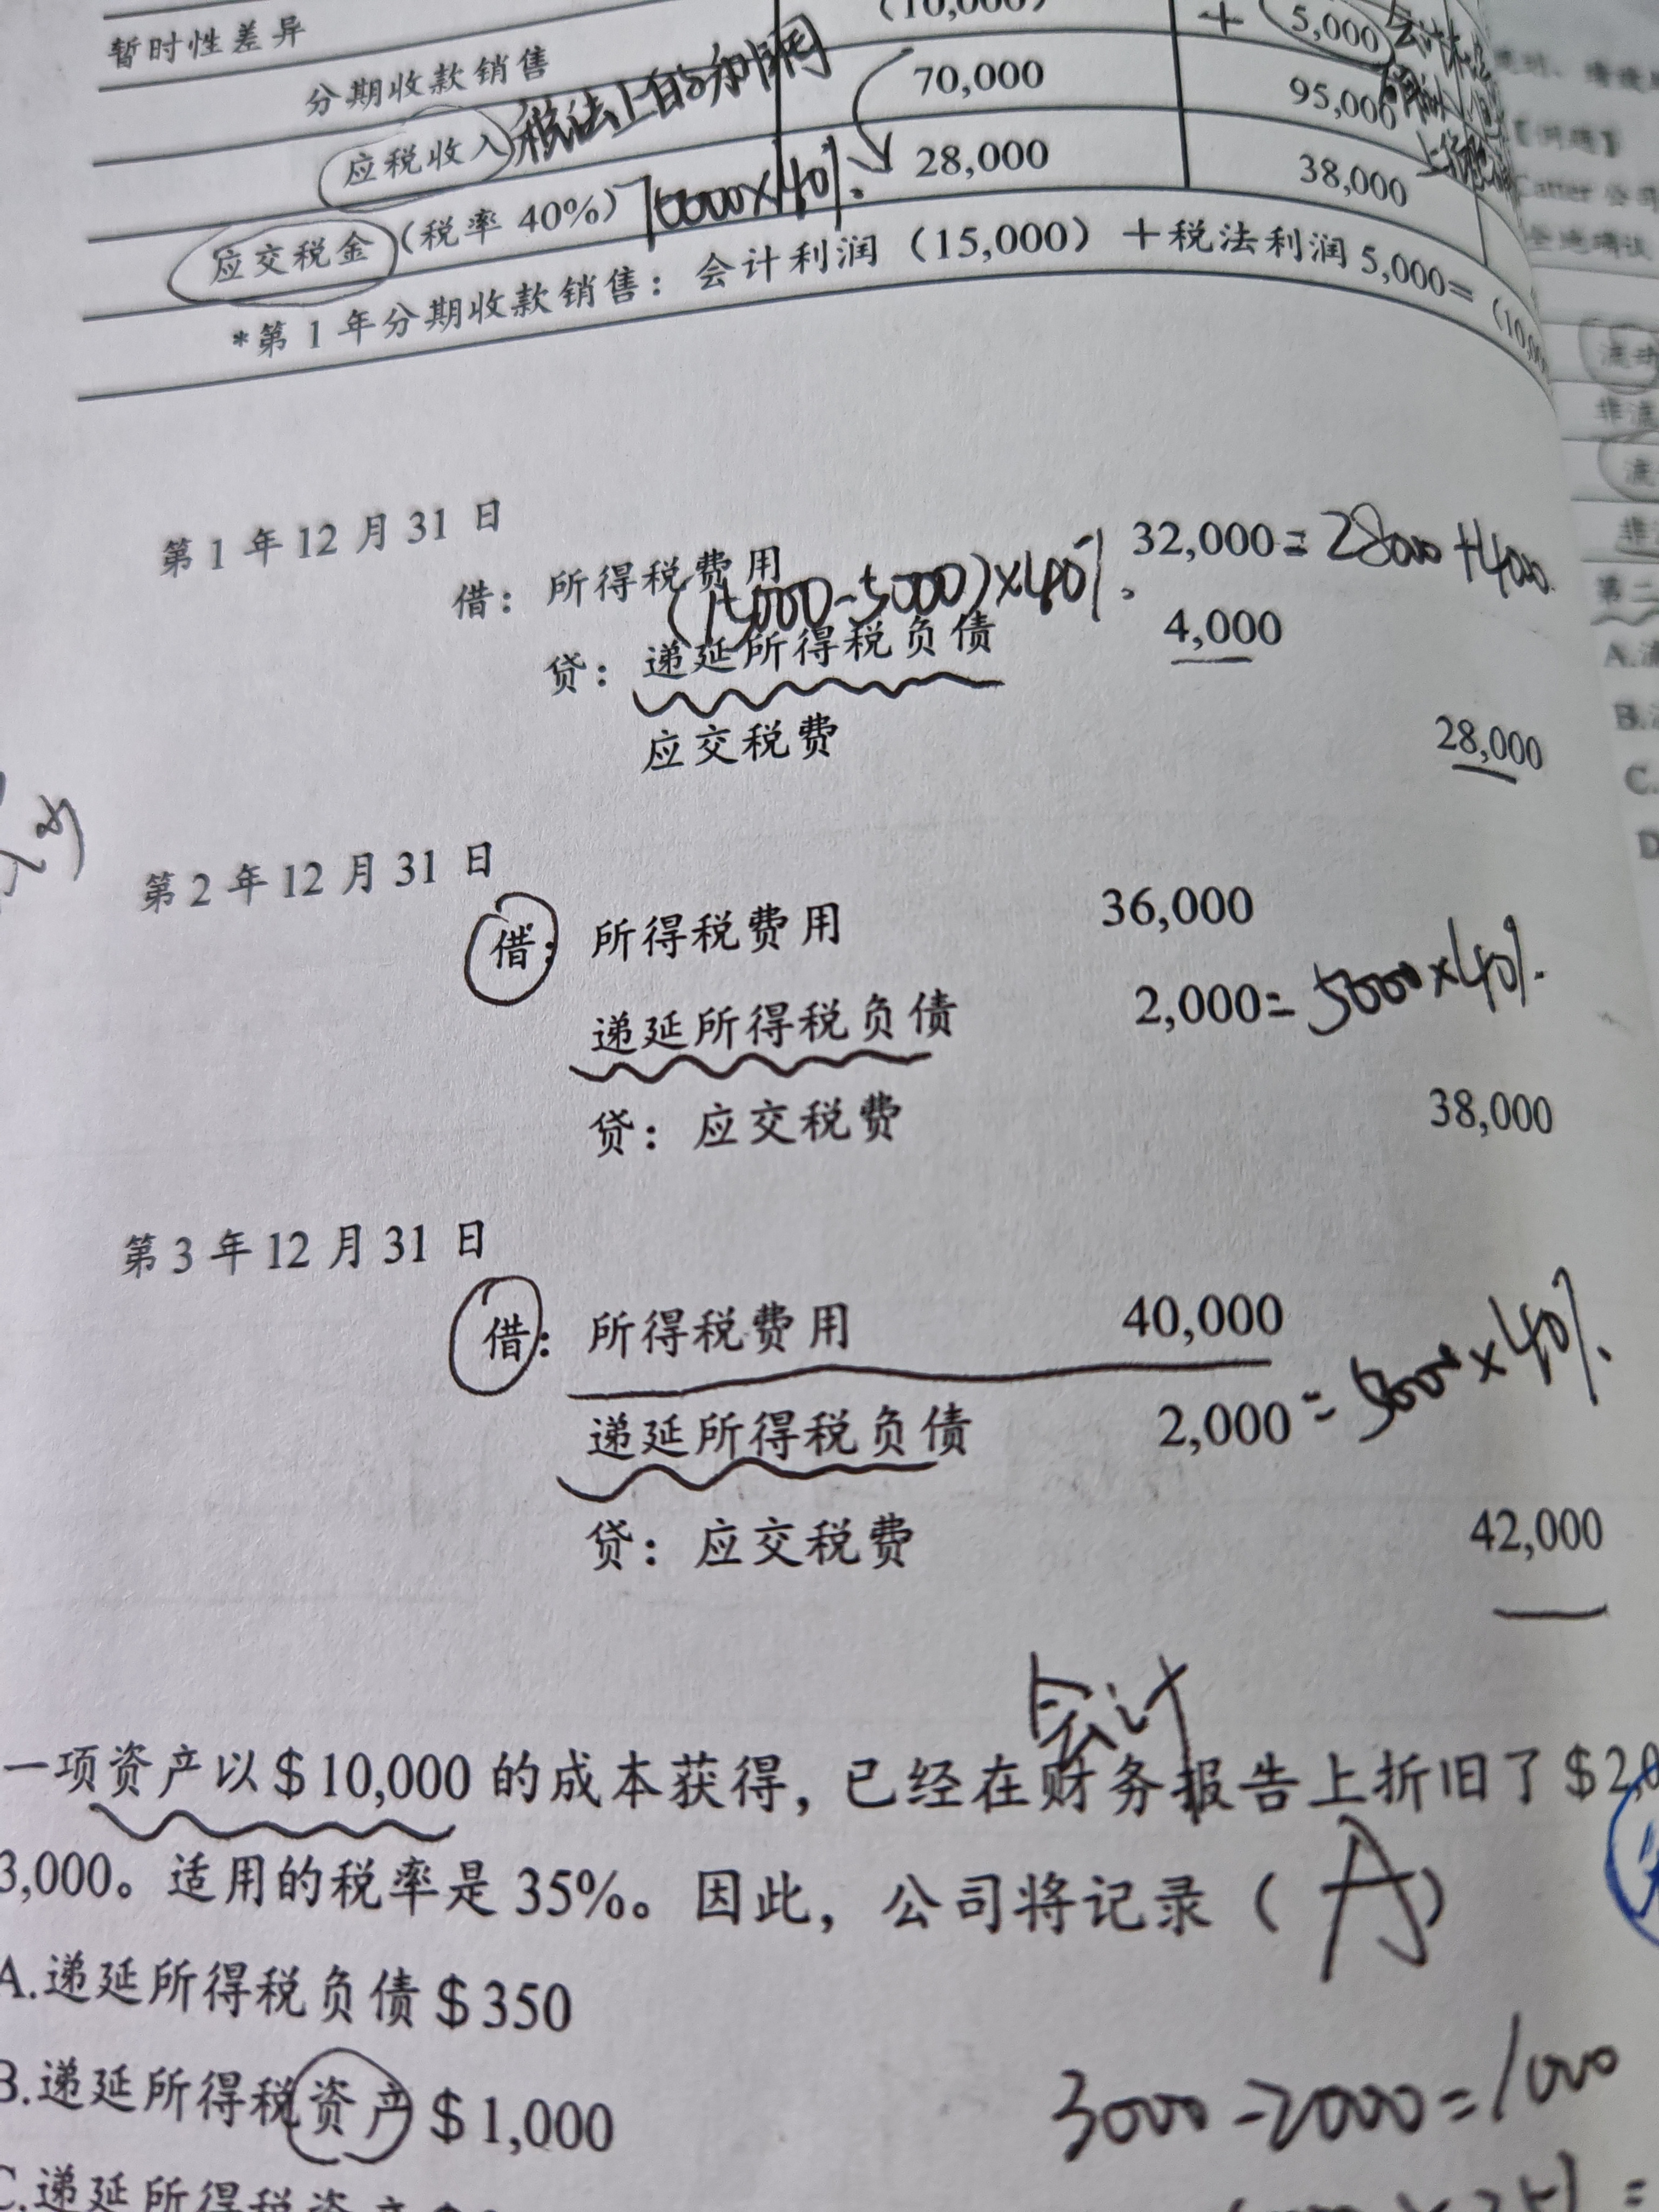 暂时性差异
分期收款销售 (10,000) + 5,000
应税收入 税法上的 70,000 95,000
应交税金（税率 40%） 70000×40%. 28,000 38,000
*第 1 年分期收款销售：会计利润（15,000）＋税法利润 5,000=（10,0
第 1 年 12 月 31 日
借：所得税费用 32,000 = 28000 + 4000.
(15000-5000)×40%.
贷：递延所得税负债 4,000
应交税费 28,000
第 2 年 12 月 31 日
借：所得税费用 36,000
递延所得税负债 2,000 = 5000×40%.
贷：应交税费 38,000
第 3 年 12 月 31 日
借：所得税费用 40,000
递延所得税负债 2,000 = 5000×40%.
贷：应交税费 42,000
会计
一项资产以＄10,000 的成本获得，已经在财务报告上折旧了＄2,0
3,000。适用的税率是 35%。因此，公司将记录（ A ）
A.递延所得税负债＄350
B.递延所得税资产＄1,000
3000-2000=1000
C.递延所得税资产
【例题】
Catter 公司
流动
非流
第二
A.
B.
C.
D